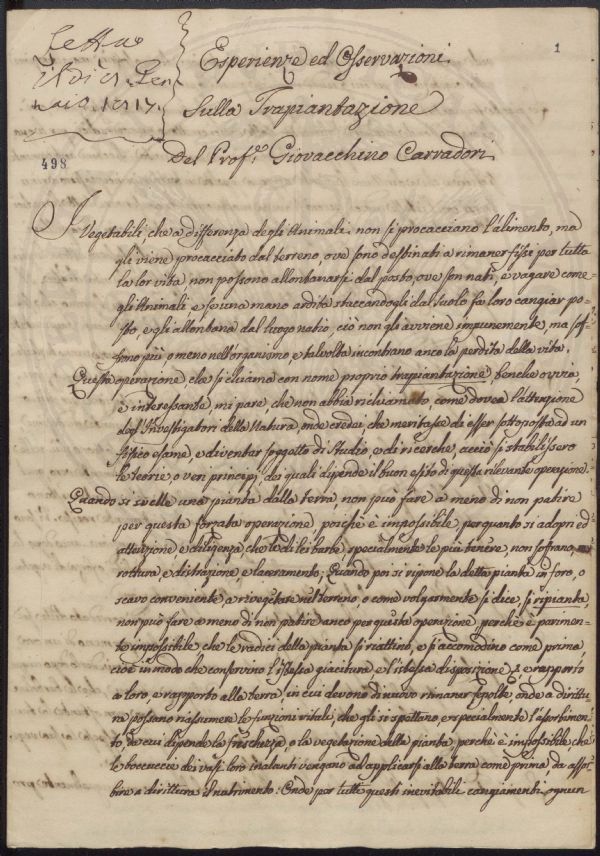 Letta
il dì 12. Gen
naio 1817.
1
Esperienze ed Osservazioni
Sulla Trapiantazione
Del Prof.e Giovacchino Carradori
498
I Vegetabili che a differenza degli Animali non si procacciano l'alimento, ma
gli viene procacciato dal terreno, ove sono destinati a rimaner fissi per tutta
la lor vita non possono allontanarsi dal posto, ove son nati, e vagare come
gli Animali e se una mano ardita staccandogli dal suolo fa loro cangiar po-
sto, e gli allontana dal luogo natio, ciò non gli avviene impunemente, ma sof-
frono più o meno nell'organismo, e talvolta incontrano anco la perdita della vita.
Questa operazione che si chiama con nome proprio trapiantazione, benche ovvia,
e interessante, mi pare, che non abbia richiamato come dovea l'attenzione
degl'Investigatori della Natura, onde credei che meritasse di esser sottoposta ad un
fisico esame, e diventar soggetto di Studio, e di ricerche, acciò si stabilissero
le teorie, o veri principj, dai quali dipende il buon esito di questa rilevante operazione.
Quando si svelle una pianta dalla terra, non può fare a meno di non patire
per questa forzata operazione, poichè è impossibile, per quanto si adopri ed
attenzione e diligenza che le di lei barbe specialmente le più tenere, non soffrano,
rottura e distrazione e laceramento; Quando poi si ripone la detta pianta in foro, o
scavo conveniente a rivegetare nel terreno, o come volgarmente si dice, si ripianta,
non può fare a meno di non patire anco per questa operazione perchè è parimen-
te impossibile che le radici della pianta si riattino, e si accomodino come prima,
cioè in modo che conservino l'istessa giacitura, e l'istessa disposizione e rapporto
a loro, e rapporto alla terra, in cui devono di nuovo rimaner sepolte, onde a dirittu-
ra possano riassumere le funzioni vitali, che gli si spettano, e specialmente l'assorbimen-
to, da cui dipende la freschezza, o la vegetazione della pianta perchè è impossibile, che
le boccuccie dei vasi loro inalanti vengano ad applicarsi alla terra come prima, da assor-
bire a dirittura il nutrimento: Onde per tutti questi inevitabili cangiamenti ognun